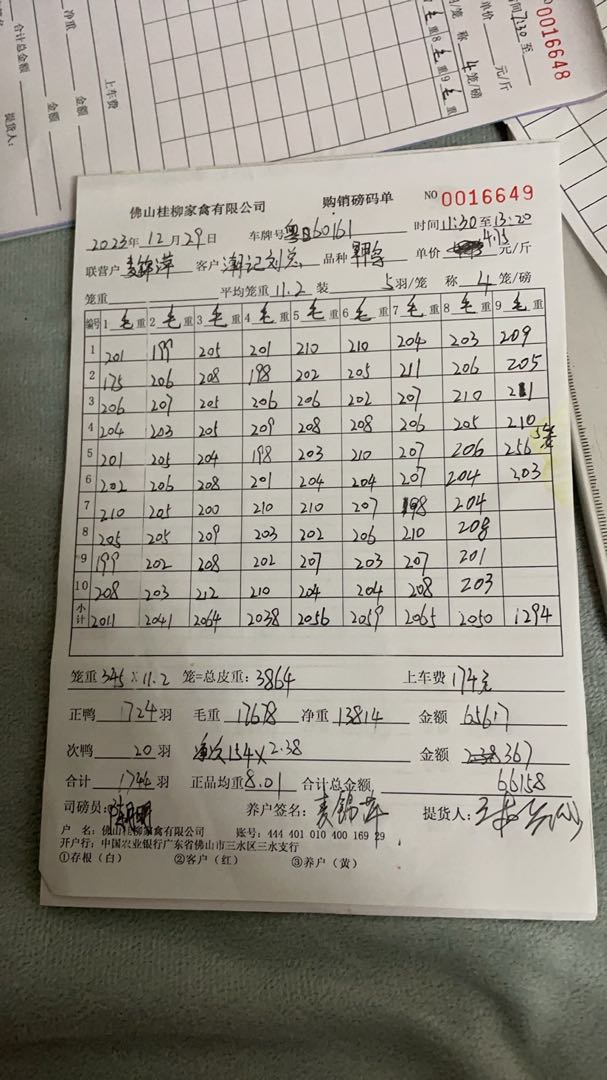 净重
合计总金额
金额
金额
上车费
提货人:
重8毛重9毛重
称4笼/磅
单价 元/斤
时间7:30至
0016648
佛山桂柳家禽有限公司 购销磅码单 NO 0016649
2023年12月29日 车牌号粤 60161 时间11:30至13:20
联营户麦锦萍 客户潮记刘总 品种 单价 4.75 元/斤
笼重 平均笼重11.2 装 5羽/笼 称 4 笼/磅
编号 1毛重 2毛重 3毛重 4毛重 5毛重 6毛重 7毛重 8毛重 9毛重
1 201 199 205 201 210 210 204 203 209
2 175 206 208 198 202 205 211 206 205
3 206 207 205 206 206 202 207 210 211
4 204 203 205 209 208 208 206 205 210
5 201 205 204 198 203 210 207 206 256
6 202 206 208 201 204 204 207 204 203
7 210 205 200 210 210 207 198 204
8 205 205 209 203 202 206 210 208
9 199 202 208 202 207 203 207 201
10 208 203 212 210 204 204 208 203
小计 2011 2041 2064 2038 2056 2059 2065 2050 1294
笼重345×11.2 笼=总皮重:3864 上车费174元
正鸭 1724羽 毛重 17678 净重 13814 金额 65617
次鸭 20 羽 154×2.38 金额 367
合计 1744羽 正品均重8.01 合计总金额 66158
司磅员: 养户签名: 麦锦萍 提货人:
户 名: 佛山桂柳家禽有限公司 账号: 444 401 010 400 169 29
开户行: 中国农业银行广东省佛山市三水区三水支行
①存根(白) ②客户(红) ③养户(黄)